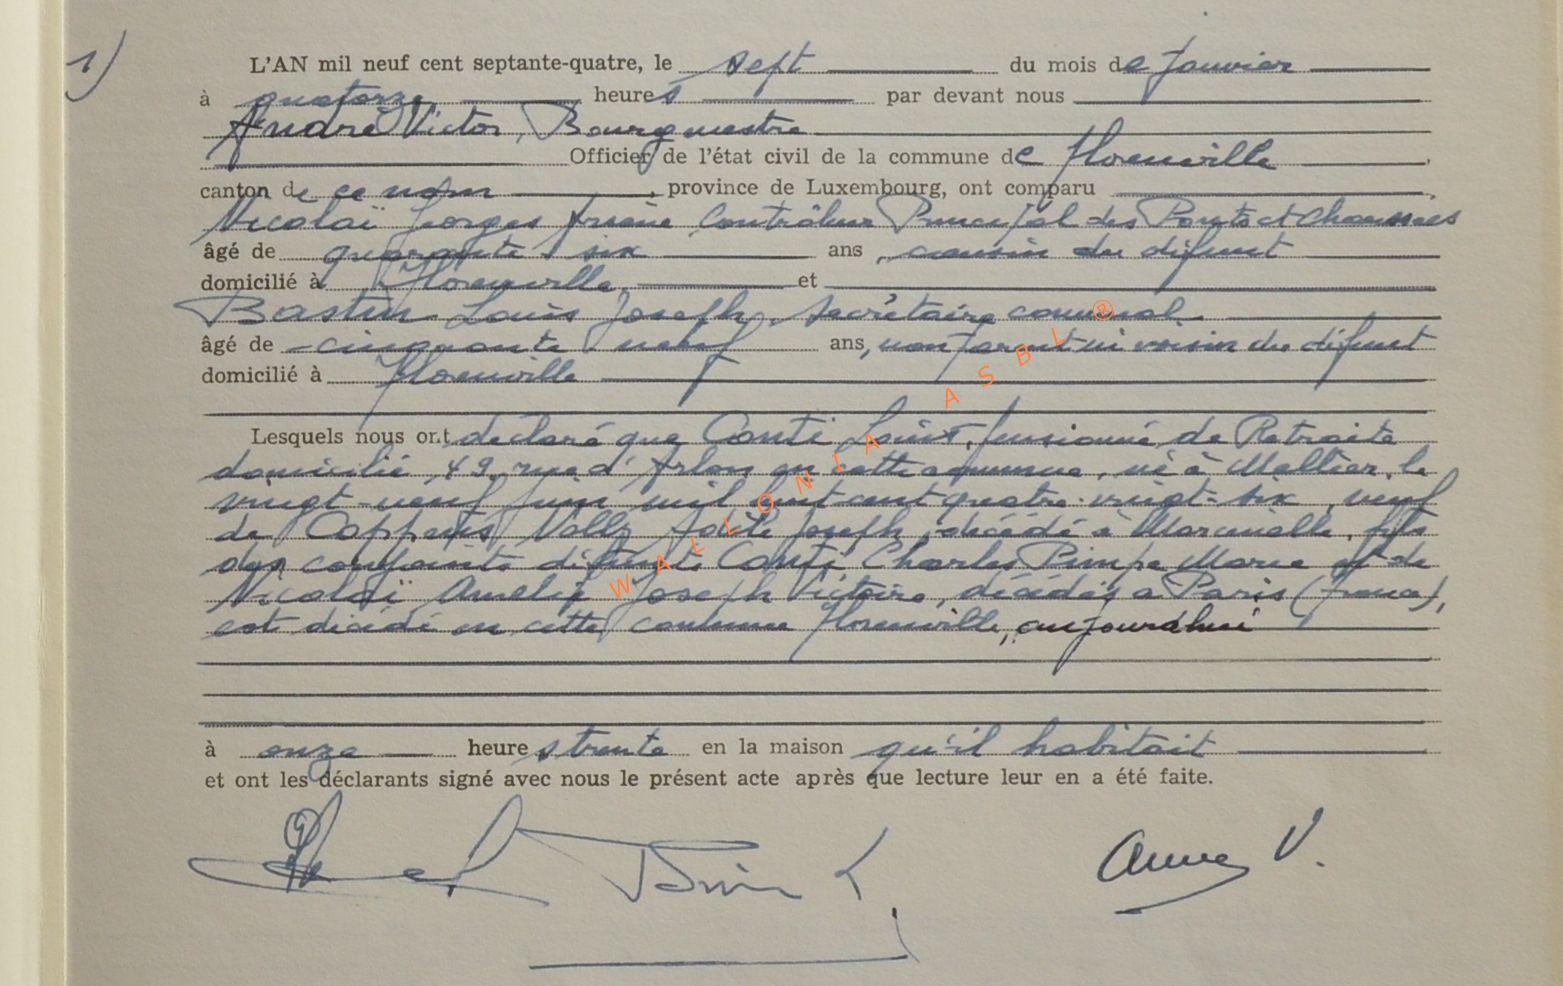 1)
L'AN mil neuf cent septante-quatre, le sept du mois de Janvier
à quatorze heures par devant nous
André Victor, Bourgmestre
Officier de l'état civil de la commune de Florenville
canton de ce nom, province de Luxembourg, ont comparu
Nicolaï Georges Contrôleur Principal des Ponts et Chaussées
âgé de quarante six ans, cousin du défunt
domicilié à Florenville, et
Bastin Louis Joseph, secrétaire communal
âgé de cinquante neuf ans, non parent ni voisin du défunt
domicilié à Florenville
Lesquels nous ont declaré que Conti Louis, pensionné de Retraite
domicilié, 49, rue d'Arlon en cette commune, né à Mellier, le
vingt-neuf juin mil huit cent quatre-vingt-six, veuf
de Nelly Joseph, décédé à Marcinelle, fils
des conjoints défunts Conti Charles Marie et de
Nicolaï, Amélie Joseph Victoire, décédés à Paris (France),
est décédé en cette commune Florenville, aujourd'hui
à onze heures trente en la maison qu'il habitait
et ont les déclarants signé avec nous le présent acte après que lecture leur en a été faite.
WALLONIA ASBL ®